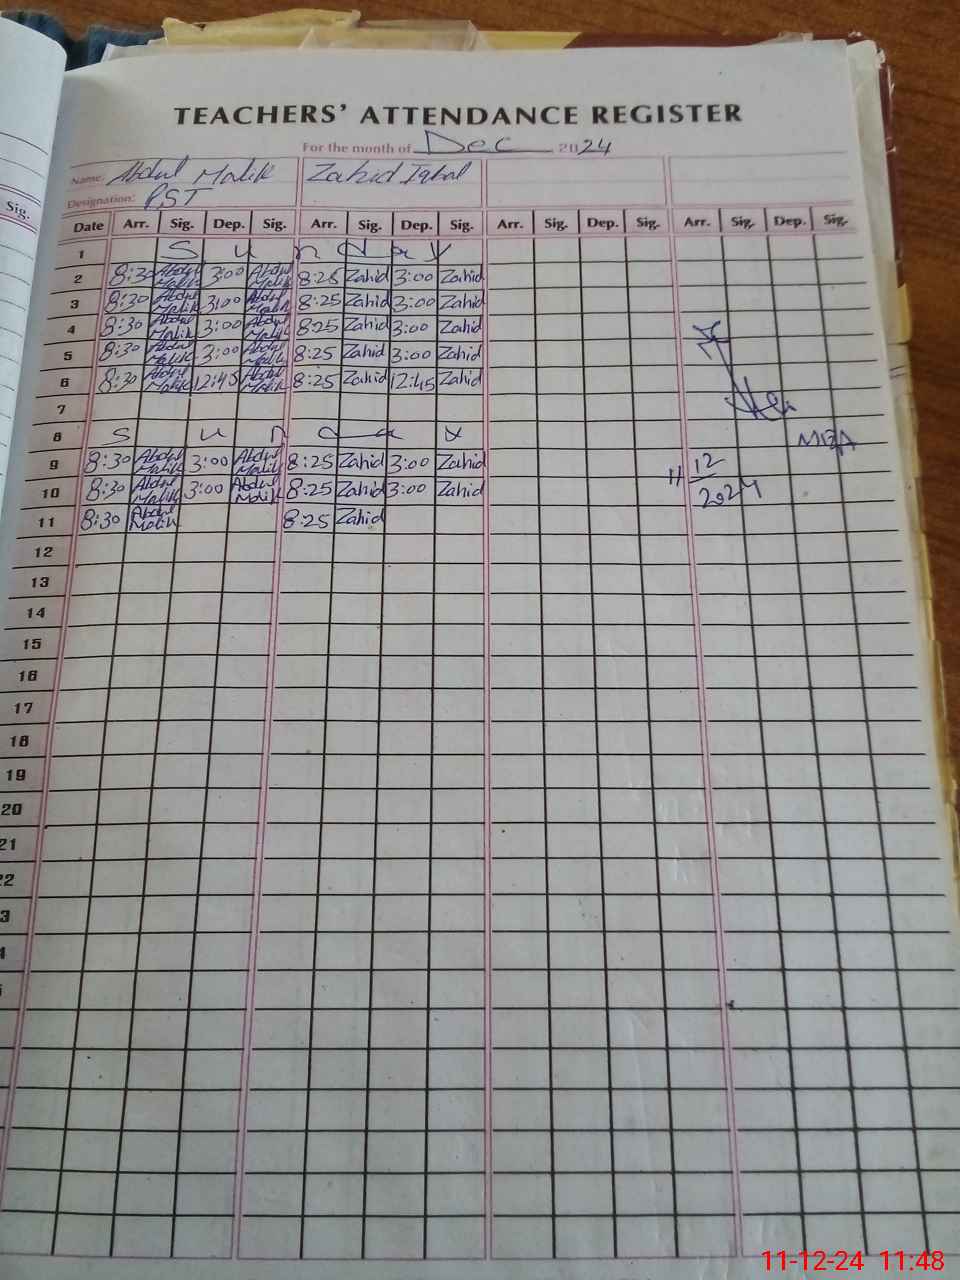 TEACHERS' ATTENDANCE REGISTER
For the month of Dec 2024
Sig.
Name: Abdul Malik Zahid Iqbal
Designation: PST
Date Arr. Sig. Dep. Sig. Arr. Sig. Dep. Sig. Arr. Sig. Dep. Sig. Arr. Sig. Dep. Sig.
1 S u n d a y
2 8:30 Abdul Malik 3:00 Abdul Malik 8:25 Zahid 3:00 Zahid
3 8:30 Abdul Malik 3:00 Abdul Malik 8:25 Zahid 3:00 Zahid
4 8:30 Abdul Malik 3:00 Abdul Malik 8:25 Zahid 3:00 Zahid
5 8:30 Abdul Malik 3:00 Abdul Malik 8:25 Zahid 3:00 Zahid
6 8:30 Abdul Malik 12:45 Abdul Malik 8:25 Zahid 12:45 Zahid
7
8 S u n d a y
MEA
9 8:30 Abdul Malik 3:00 Abdul Malik 8:25 Zahid 3:00 Zahid
10 8:30 Abdul Malik 3:00 Abdul Malik 8:25 Zahid 3:00 Zahid
11 12 2024
11 8:30 Abdul Malik 8:25 Zahid
12
13
14
15
16
17
18
19
20
21
22
3
11-12-24 11:48